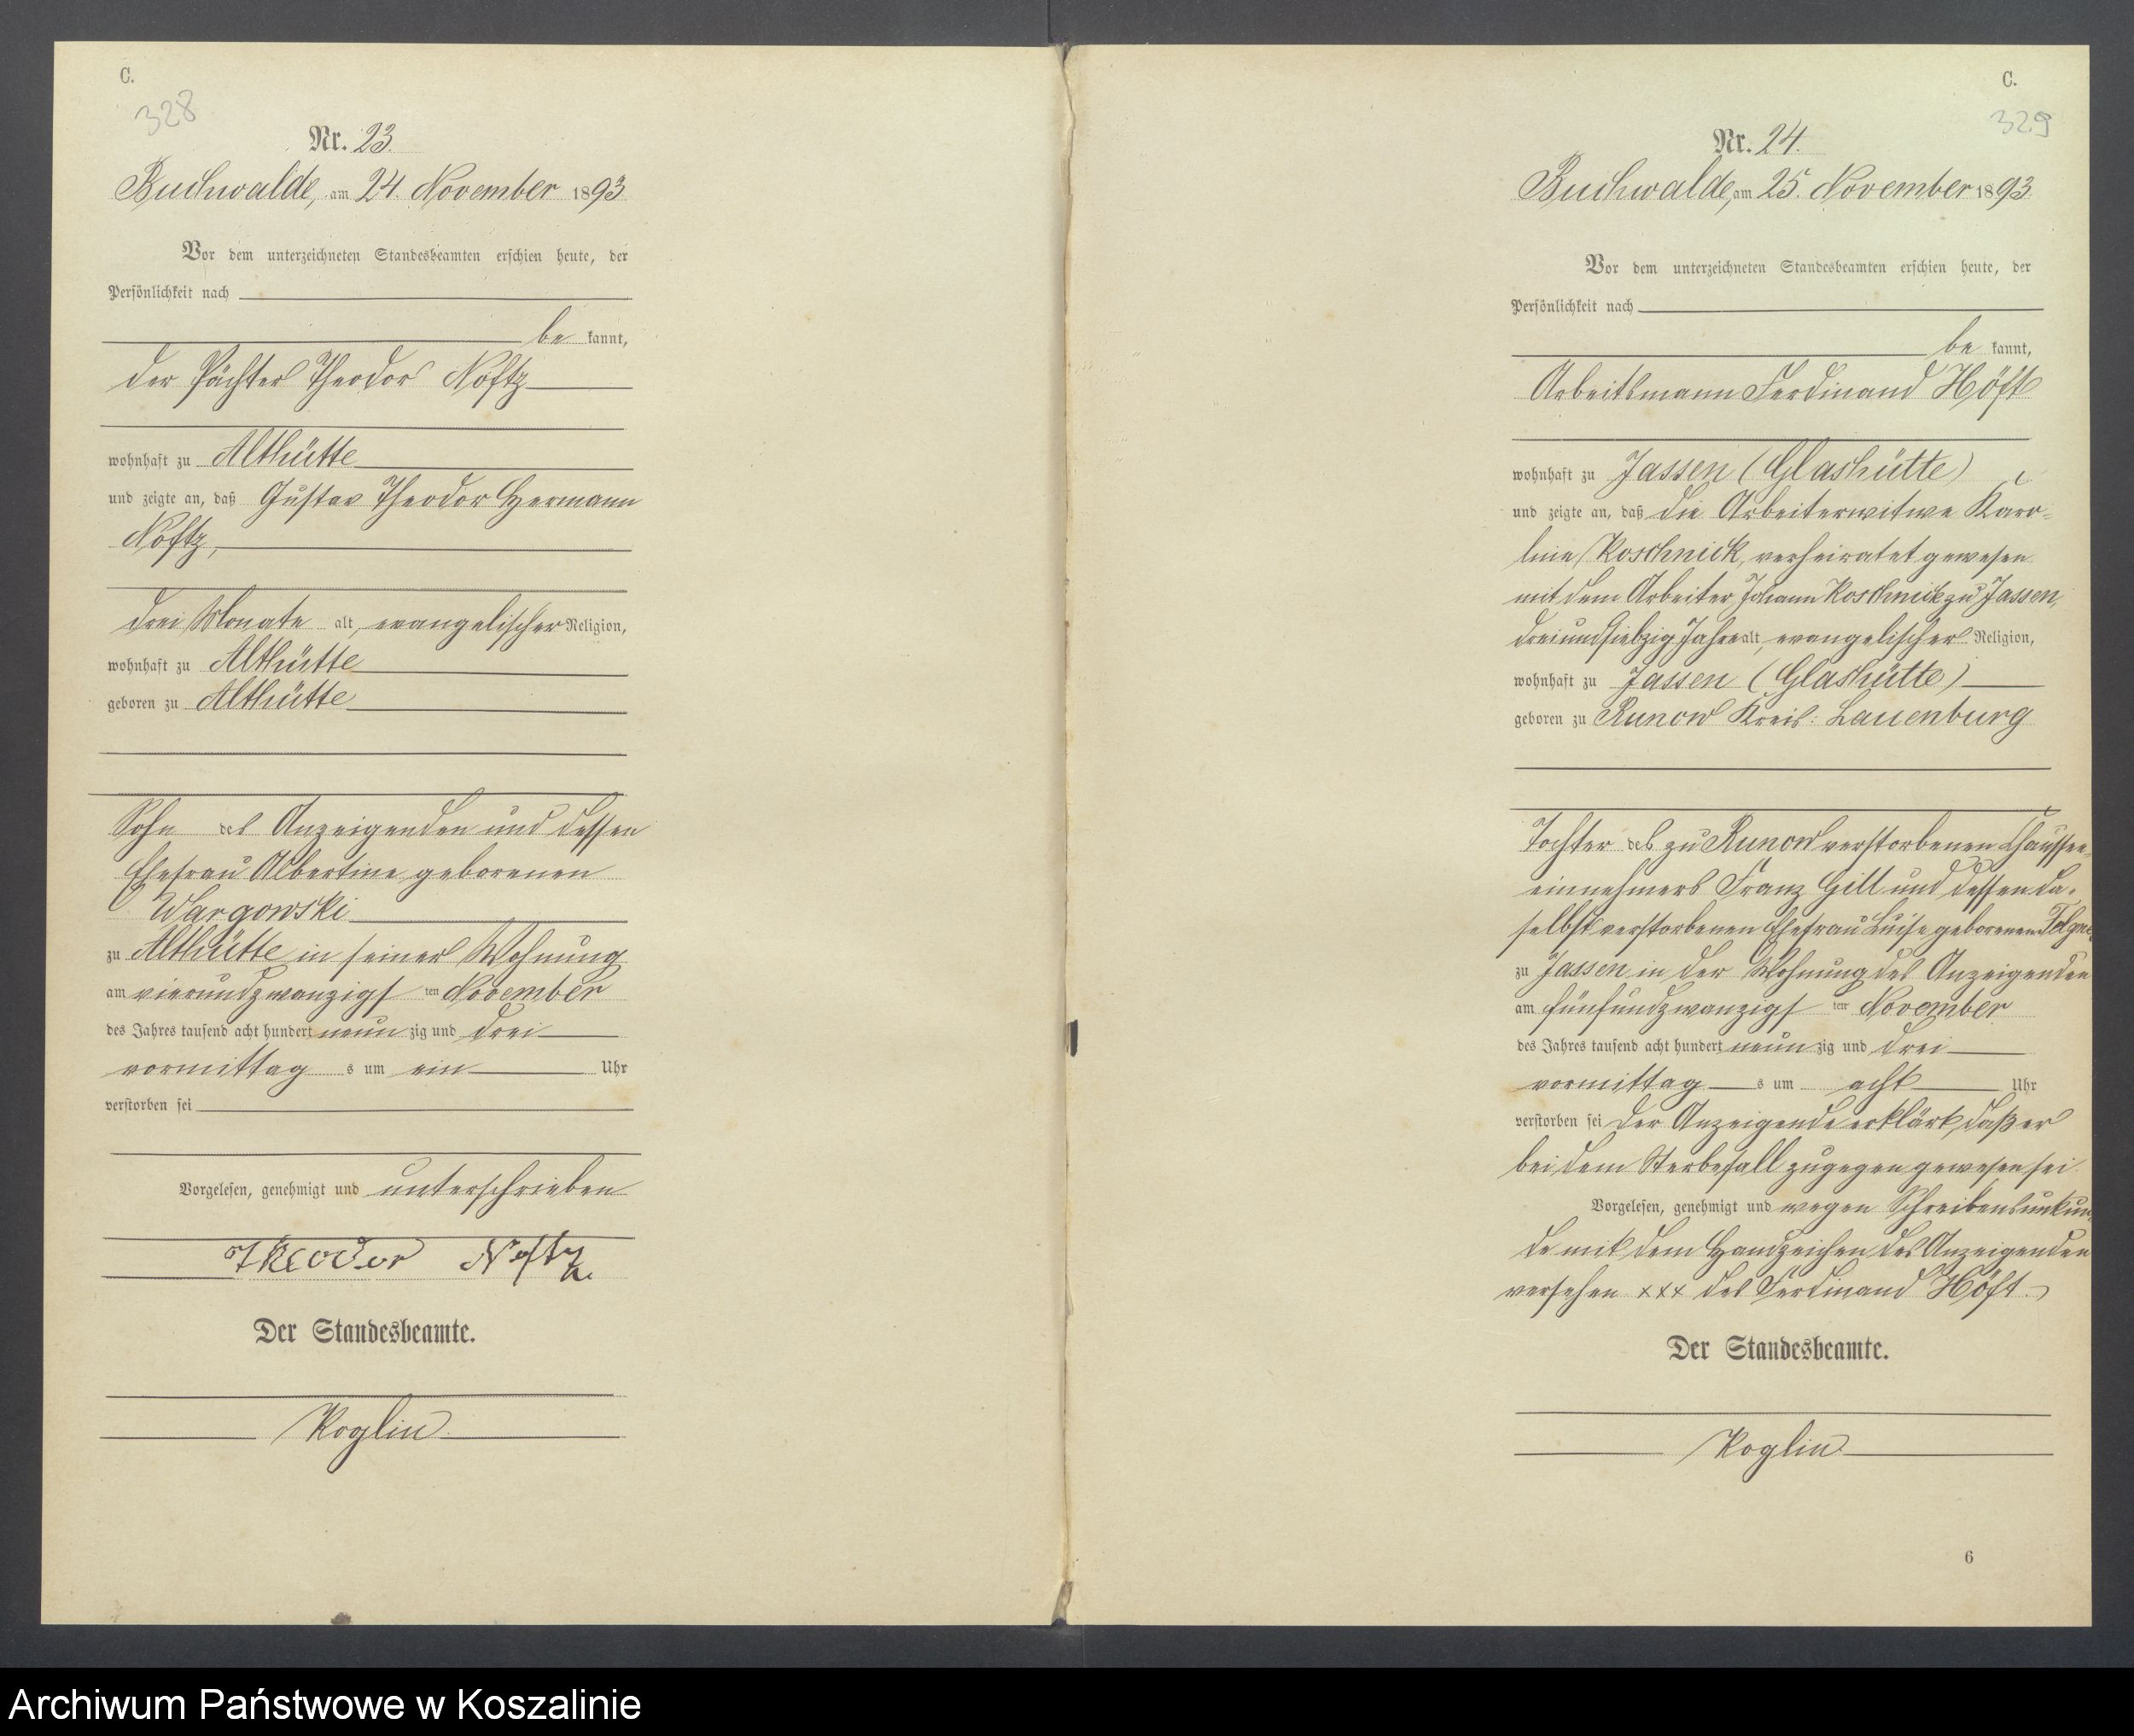 C.
328
Nr. 23.
Buchwalde, am 24. November 1893
Vor dem unterzeichneten Standesbeamten erschien heute, der
Persönlichkeit nach
be kannt,
der Pächter Theodor Noftz
wohnhaft zu Althütte
und zeigte an, daß Gustav Theodor Hermann
Noftz,
drei Monate alt, evangelischer Religion,
wohnhaft zu Althütte
geboren zu Althütte
Sohn des Anzeigenden und dessen
Ehefrau Albertine geborenen
Wargowski
zu Althütte in seiner Wohnung
am vierundzwanzigs ten November
des Jahres tausend acht hundert neun zig und drei
vormittag s um ein Uhr
verstorben sei
Vorgelesen, genehmigt und unterschrieben
Theodor Noftz.
Der Standesbeamte.
Koglin
C.
329
Nr. 24.
Buchwalde, am 25. November 1893
Vor dem unterzeichneten Standesbeamten erschien heute, der
Persönlichkeit nach
be kannt,
Arbeitsmann Ferdinand Höft
wohnhaft zu Jassen (Glashütte)
und zeigte an, daß die Arbeiterwitwe Karo-
line Koschnick, verheiratet gewesen
mit dem Arbeiter Johann Koschnick zu Jassen,
dreiundsiebzig Jahre alt, evangelischer Religion,
wohnhaft zu Jassen (Glashütte)
geboren zu Runow Kreis: Lauenburg
Tochter des zu Runow verstorbenen Chaussee-
einnehmers Franz Gill und dessen da-
selbst verstorbenen Ehefrau Luise geborenen
zu Jassen in der Wohnung des Anzeigenden
am fünfundzwanzigs ten November
des Jahres tausend acht hundert neun zig und drei
vormittag s um acht Uhr
verstorben sei Der Anzeigende erklärt, daß er
bei dem Sterbefall zugegen gewesen sei
Vorgelesen, genehmigt und wegen Schreibensunkun-
de mit dem Handzeichen des Anzeigenden
versehen xxx des Ferdinand Höft.
Der Standesbeamte.
Koglin
6
Archiwum Państwowe w Koszalinie